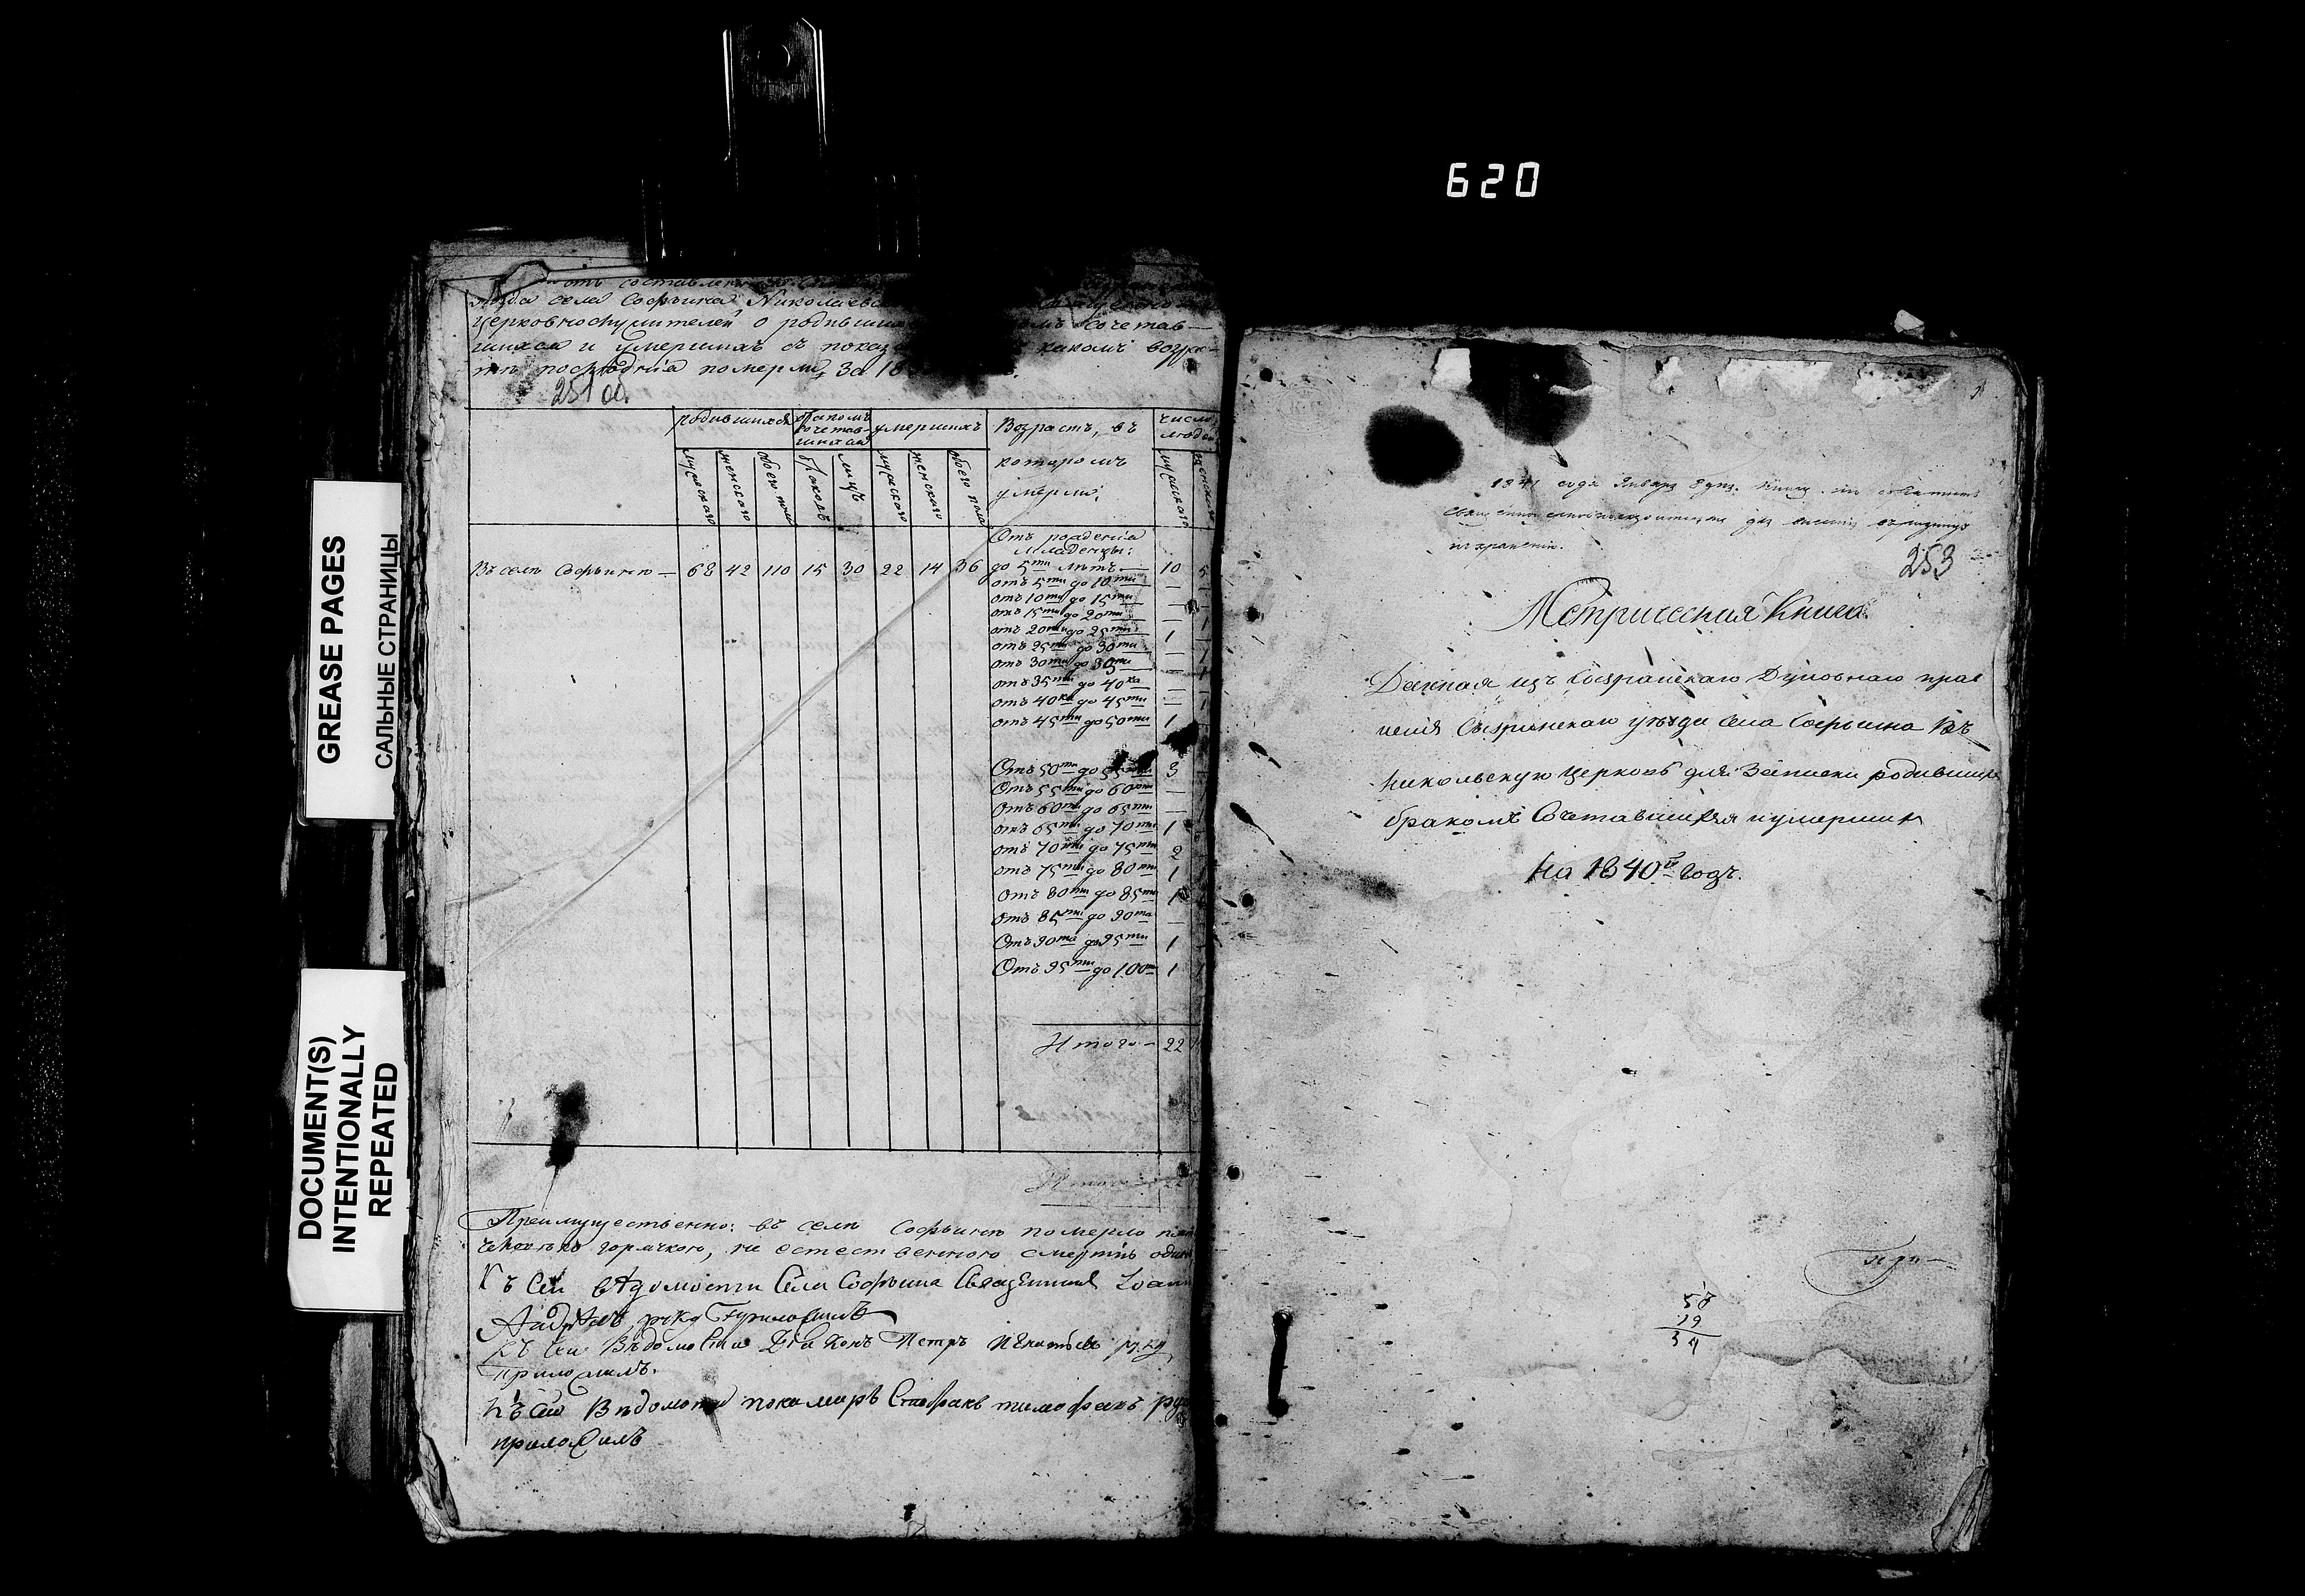 620
GREASE PAGES
САЛЬНЫЕ СТРАНИЦЫ
DOCUMENT(S)
INTENTIONALLY
REPEATED
села Софьина Николаевс
церковнослужителей о родивших сочетав—
шихся и умершихъ съ каком возра-
померли, За 18
251 об.
родившихся бракомъ сочетав-шихся умершихъ Возрастъ, въ число людей
мужеска женскаго обоего пола браковъ лицъ мужескаго женскаго обоего пола которомъ умерли мужескаго женскаго
Отъ рожденія
младенцы:
Въ селе Софьине — 68 42 110 15 30 22 14 36 до 5ти летъ — 10 5
отъ 5ти до 10ти — —
отъ 10ти до 15ти — —
отъ 15ти до 20ти — 1
отъ 20ти до 25ти 1 —
отъ 25ти до 30ти — 1
отъ 30ти до 35ти — 1
отъ 35ти до 40ка — —
отъ 40ка до 45ти — 1
отъ 45ти до 50ти 1
Отъ 50ти до 55ти 3
Отъ 55ти до 60ти —
Отъ 60ти до 65ти —
отъ 65ти до 70ти 1
отъ 70ти до 75ти 2
отъ 75ти до 80ти 1
Отъ 80ти до 85ти 1
Отъ 85ти до 90та —
Отъ 90та до 95ти 1
Отъ 95ти до 100 1 1
Итого — 22
Итого — 22
Преимущественно: въ селе Софьине померло
горячкою, не естественною смертію
Къ сей вѣдомости Села Софьина Священникъ Іоанн
руку приложилъ
Къ сей Вѣдомости Діаконъ Петръ Игнатьевъ руку
приложилъ.
Къ сей Вѣдомости пономарь Тимофеевъ
приложилъ
1841 года Января 8 дня. Книга
въ
къ храненію.
253
Метрическая Книга
Данная изъ Сызранскаго Духовнаго прав
ленія Сызранскаго уезда села Софьина Въ
Никольскую Церковь для Записки родивших
бракомъ Сочетавшихся и умерших
На 1840й Годъ.
58
19